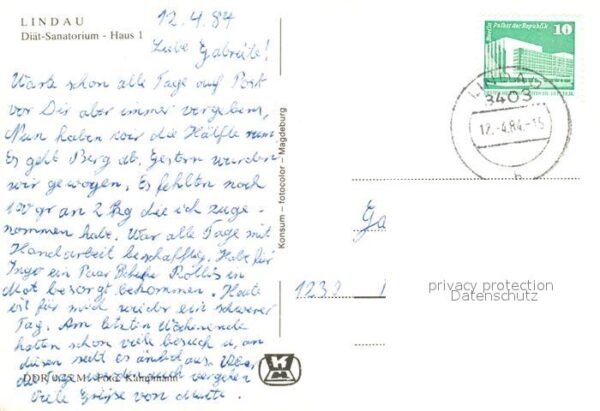 LINDAU
Diät-Sanatorium - Haus 1
12.4.84
Liebe Gabriele!
Warte schon alle Tage auf Post
von Dir aber immer vergebens,
Nun haben wir die Hälfte rum
Es geht Berg ab. Gestern wurden
wir gewogen. Es fehlten noch
100 gr an 2 kg die ich zuge-
nommen habe. War alle Tage mit
Handarbeit beschäftig. Habe für
Ingo ein Paar Röllis in
Mot besorgt bekommen. Heute
ist für mich wieder ein schwerer
Tag. Am letzten Wochenende
hatten schon viele Besuch u. an
diesen sieht es änlich aus.
die Tage werden auch vergehen
Viele Grüße von Mutti.
DDR 0,25 M Foto: Kampmann
Konsum - fotocolor - Magdeburg
Berlin Palast der Republik
10
LINDAU
3403
12.-4.84.-15
b
Ga
123
privacy protection
Datenschutz